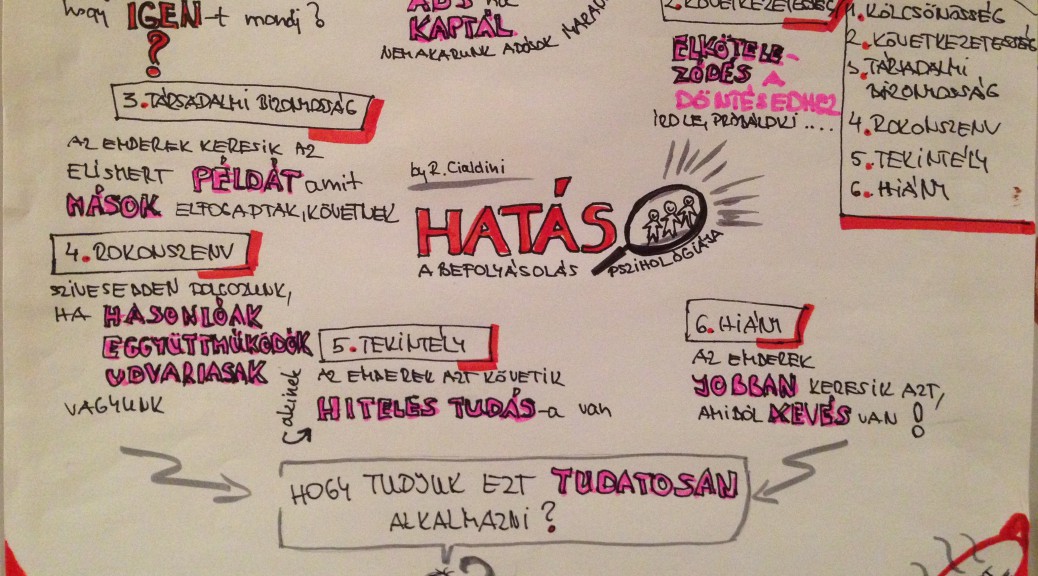 hogy IGEN-t mondj?
?
KAPTÁL
NEM AKARUNK ADÓSOK MARAD
2. KÖVETKEZETESSÉG
ELKÖTELE-
ZŐDÉS A
DÖNTÉSEDHEZ
ÍRD LE, PRÓBÁLD KI ....
1. KÖLCSÖNÖSSÉG
2. KÖVETKEZETESSÉG
3. TÁRSADALMI
BIZONYOSSÁG
4. ROKONSZENV
5. TEKINTÉLY
6. HIÁNY
3. TÁRSADALMI BIZONYOSSÁG
AZ EMBEREK KERESIK AZ
ELISMERT PÉLDÁT amit
MÁSOK ELFOGADTAK, KÖVETNEK
by R. Cialdini
HATÁS
A BEFOLYÁSOLÁS PSZIHOLÓGIÁJA
4. ROKONSZENV
SZÍVESEBBEN DOLGOZUNK,
HA HASONLÓAK
EGGYÜTTMŰKÖDŐK
UDVARIASAK
VAGYUNK
5. TEKINTÉLY
AZ EMBEREK AZT KÖVETIK
akinek
HITELES TUDÁS-a van
6. HIÁNY
AZ EMBEREK
JOBBAN KERESIK AZT,
AMIBŐL KEVÉS VAN !
HOGY TUDJUK EZT TUDATOSAN
ALKALMAZNI?